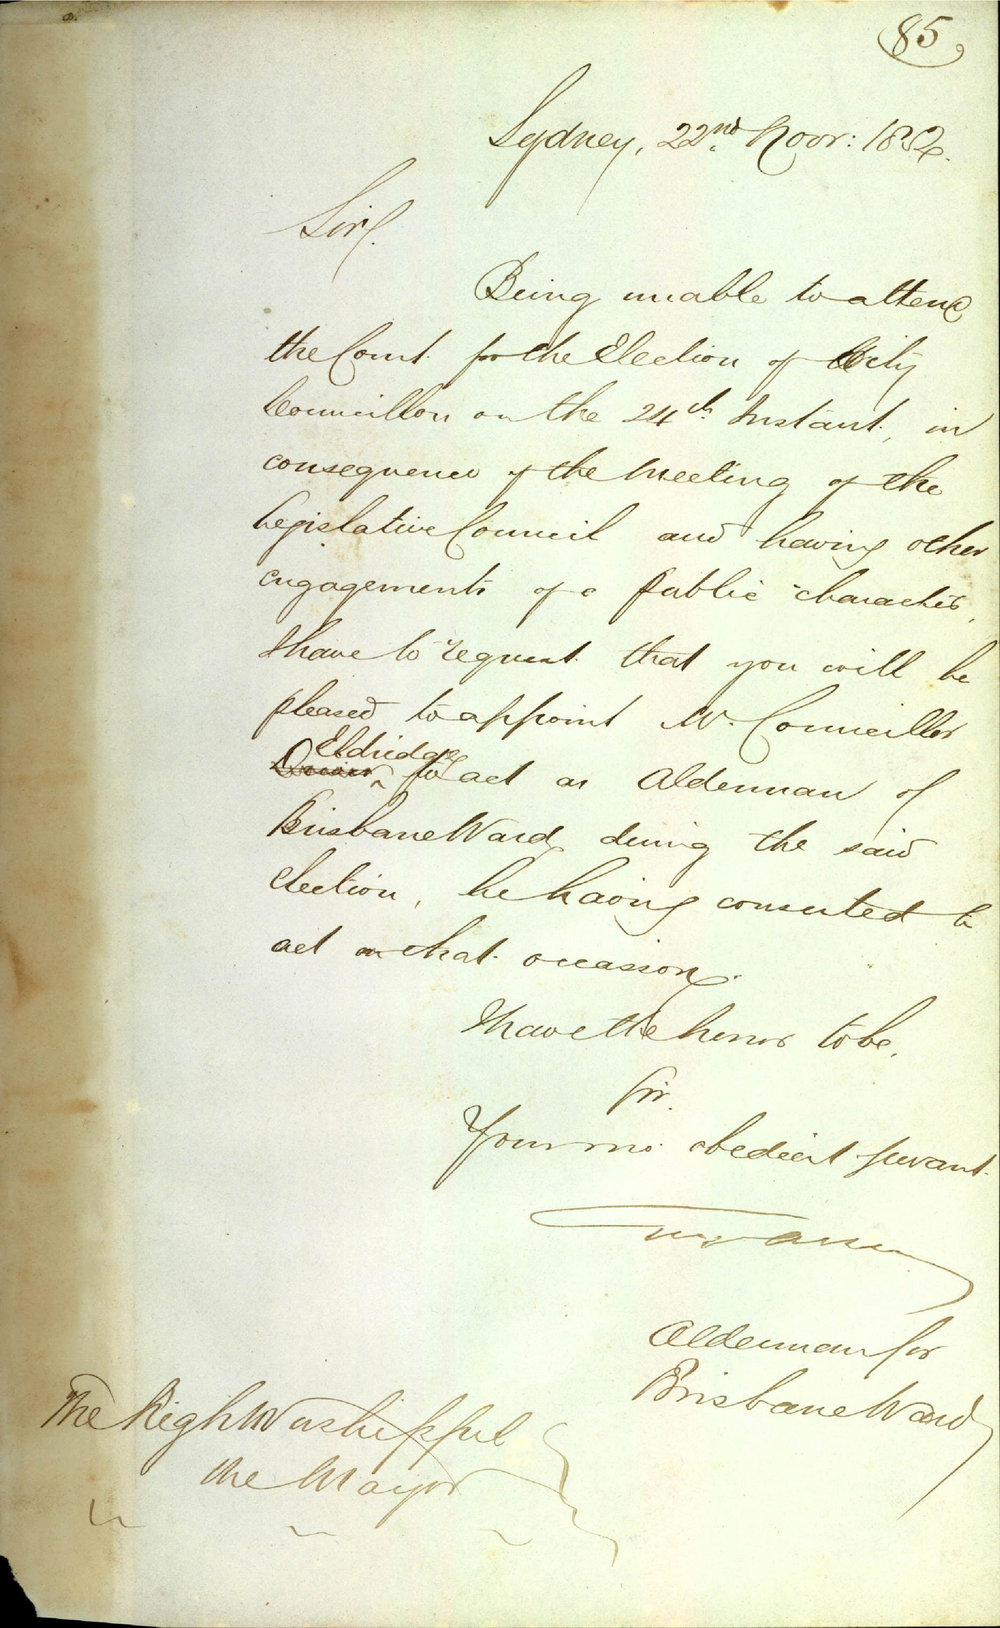 85
Sydney, 22nd Novr: 1852.
Sir,
Being unable to attend
the Court for the Election of City
Councillor on the 24th Instant, in
consequence of the Meeting of the
Legislative Council and having other
engagements of a public character,
I have to request that you will be
pleased to appoint Mr. Councillor
Eldridge
to act as Alderman of
Brisbane Ward during the said
election, he having consented to
act on that occassion.
I have the honor to be,
Sir.
Your mo. obedient servant.
Alderman for
Brisbane Ward
The Right Worshipful
The Mayor